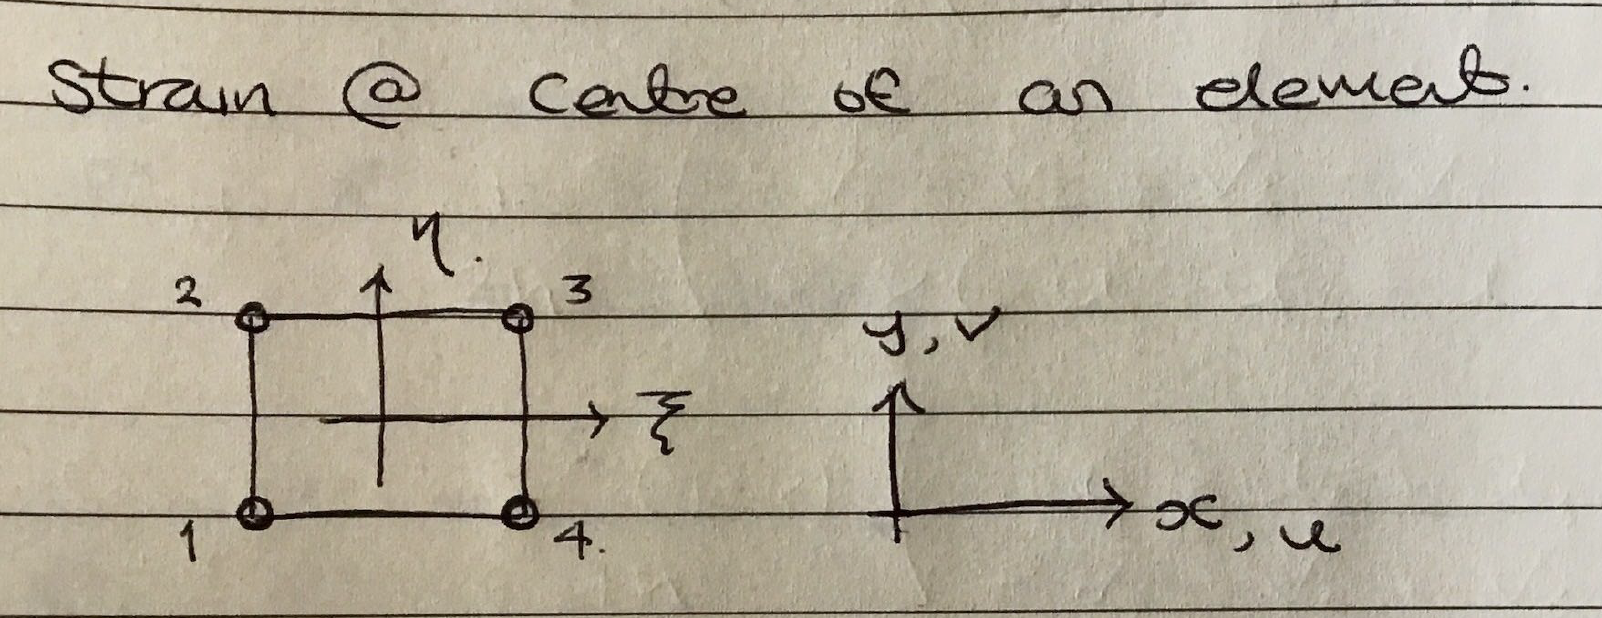 Strain @ centre of an element.
η.
2 3
y, v
ξ
x, u
1 4.